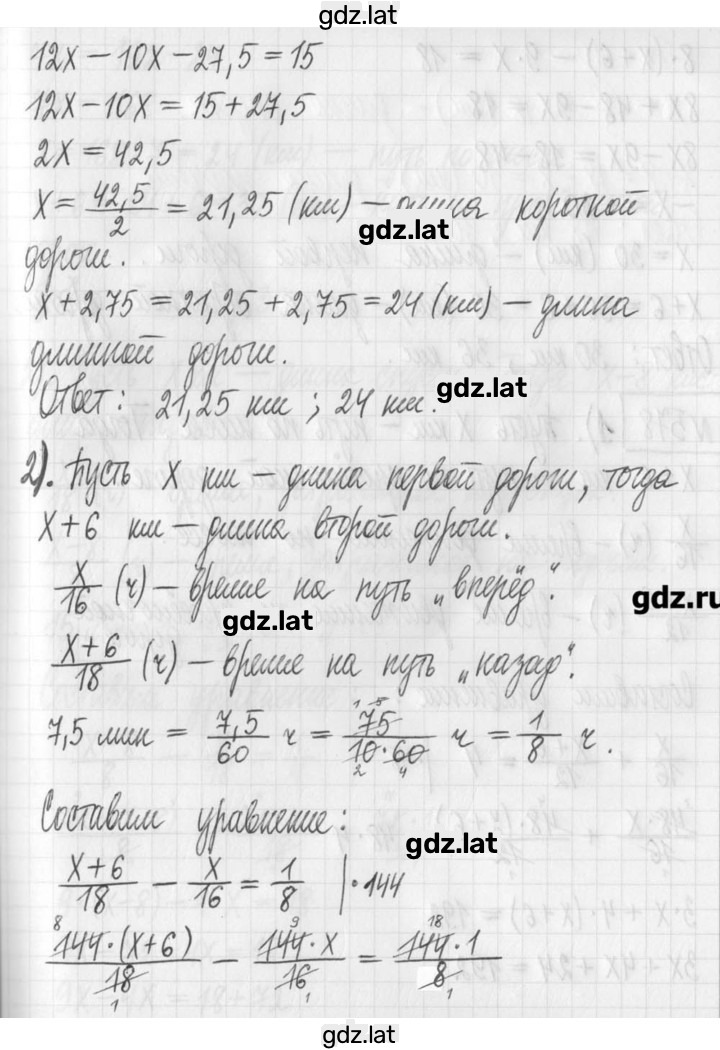 gdz.lat
12x – 10x – 27,5 = 15
12x – 10x = 15 + 27,5
2x = 42,5
x = 42,5/2 = 21,25 (км) – длина короткой
gdz.lat
дороги.
x + 2,75 = 21,25 + 2,75 = 24 (км) – длина
длинной дороги.
gdz.lat
Ответ: 21,25 км ; 24 км.
2). Пусть x км – длина первой дороги, тогда
x + 6 км – длина второй дороги.
x/16 (ч) – время на путь „вперёд“.
gdz.lat
gdz.ru
x+6/18 (ч) – время на путь „назад“.
7,5 мин = 7,5/60 ч = 75/10·60 ч = 1/8 ч.
Составим уравнение:
gdz.lat
x+6/18 – x/16 = 1/8 |·144
144·(x+6)/18 – 144·x/16 = 144·1/8
gdz.lat